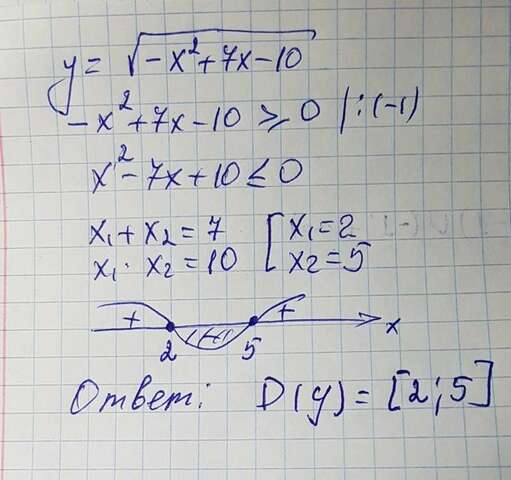 y = √(-x²+7x-10)
-x²+7x-10 ⩾ 0 /:(-1)
x²-7x+10 ≤ 0
x₁+x₂=7 [x₁=2
x₁·x₂=10 [x₂=5
+ + x
2 5
Ответ: D(y)=[2;5]